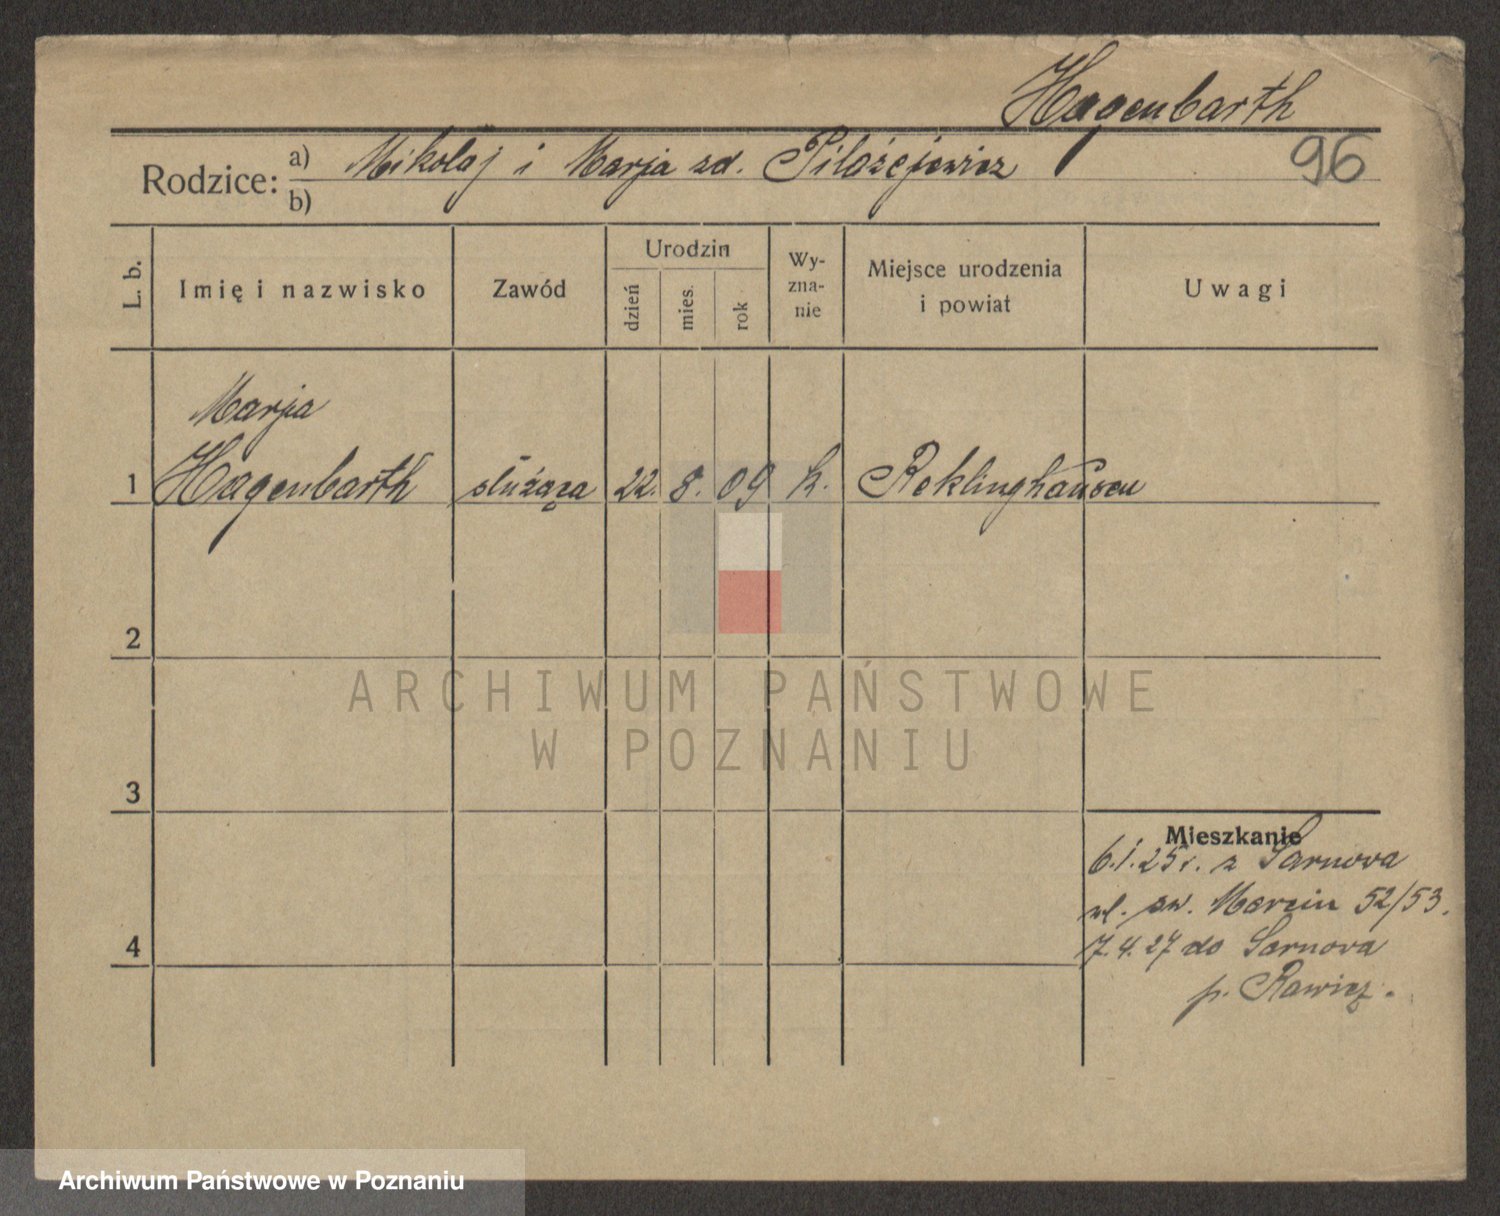 Hagenbarth
96
Rodzice: a) Mikołaj i Marja zd.
b)
L. b.
Imię i nazwisko
Zawód
Urodzin
dzień
mies.
rok
Wy-
zna-
nie
Miejsce urodzenia
i powiat
Uwagi
Marja
1 Hagenbarth służąca 22. 8. 09 k. Reklinghausen
2
3
4
Mieszkanie
6.1.25 r. z Sarnova
ul. św. Marcin 52/53.
7.4.27 do Sarnova
p. Rawicz.
ARCHIWUM PAŃSTWOWE
W POZNANIU
Archiwum Państwowe w Poznaniu